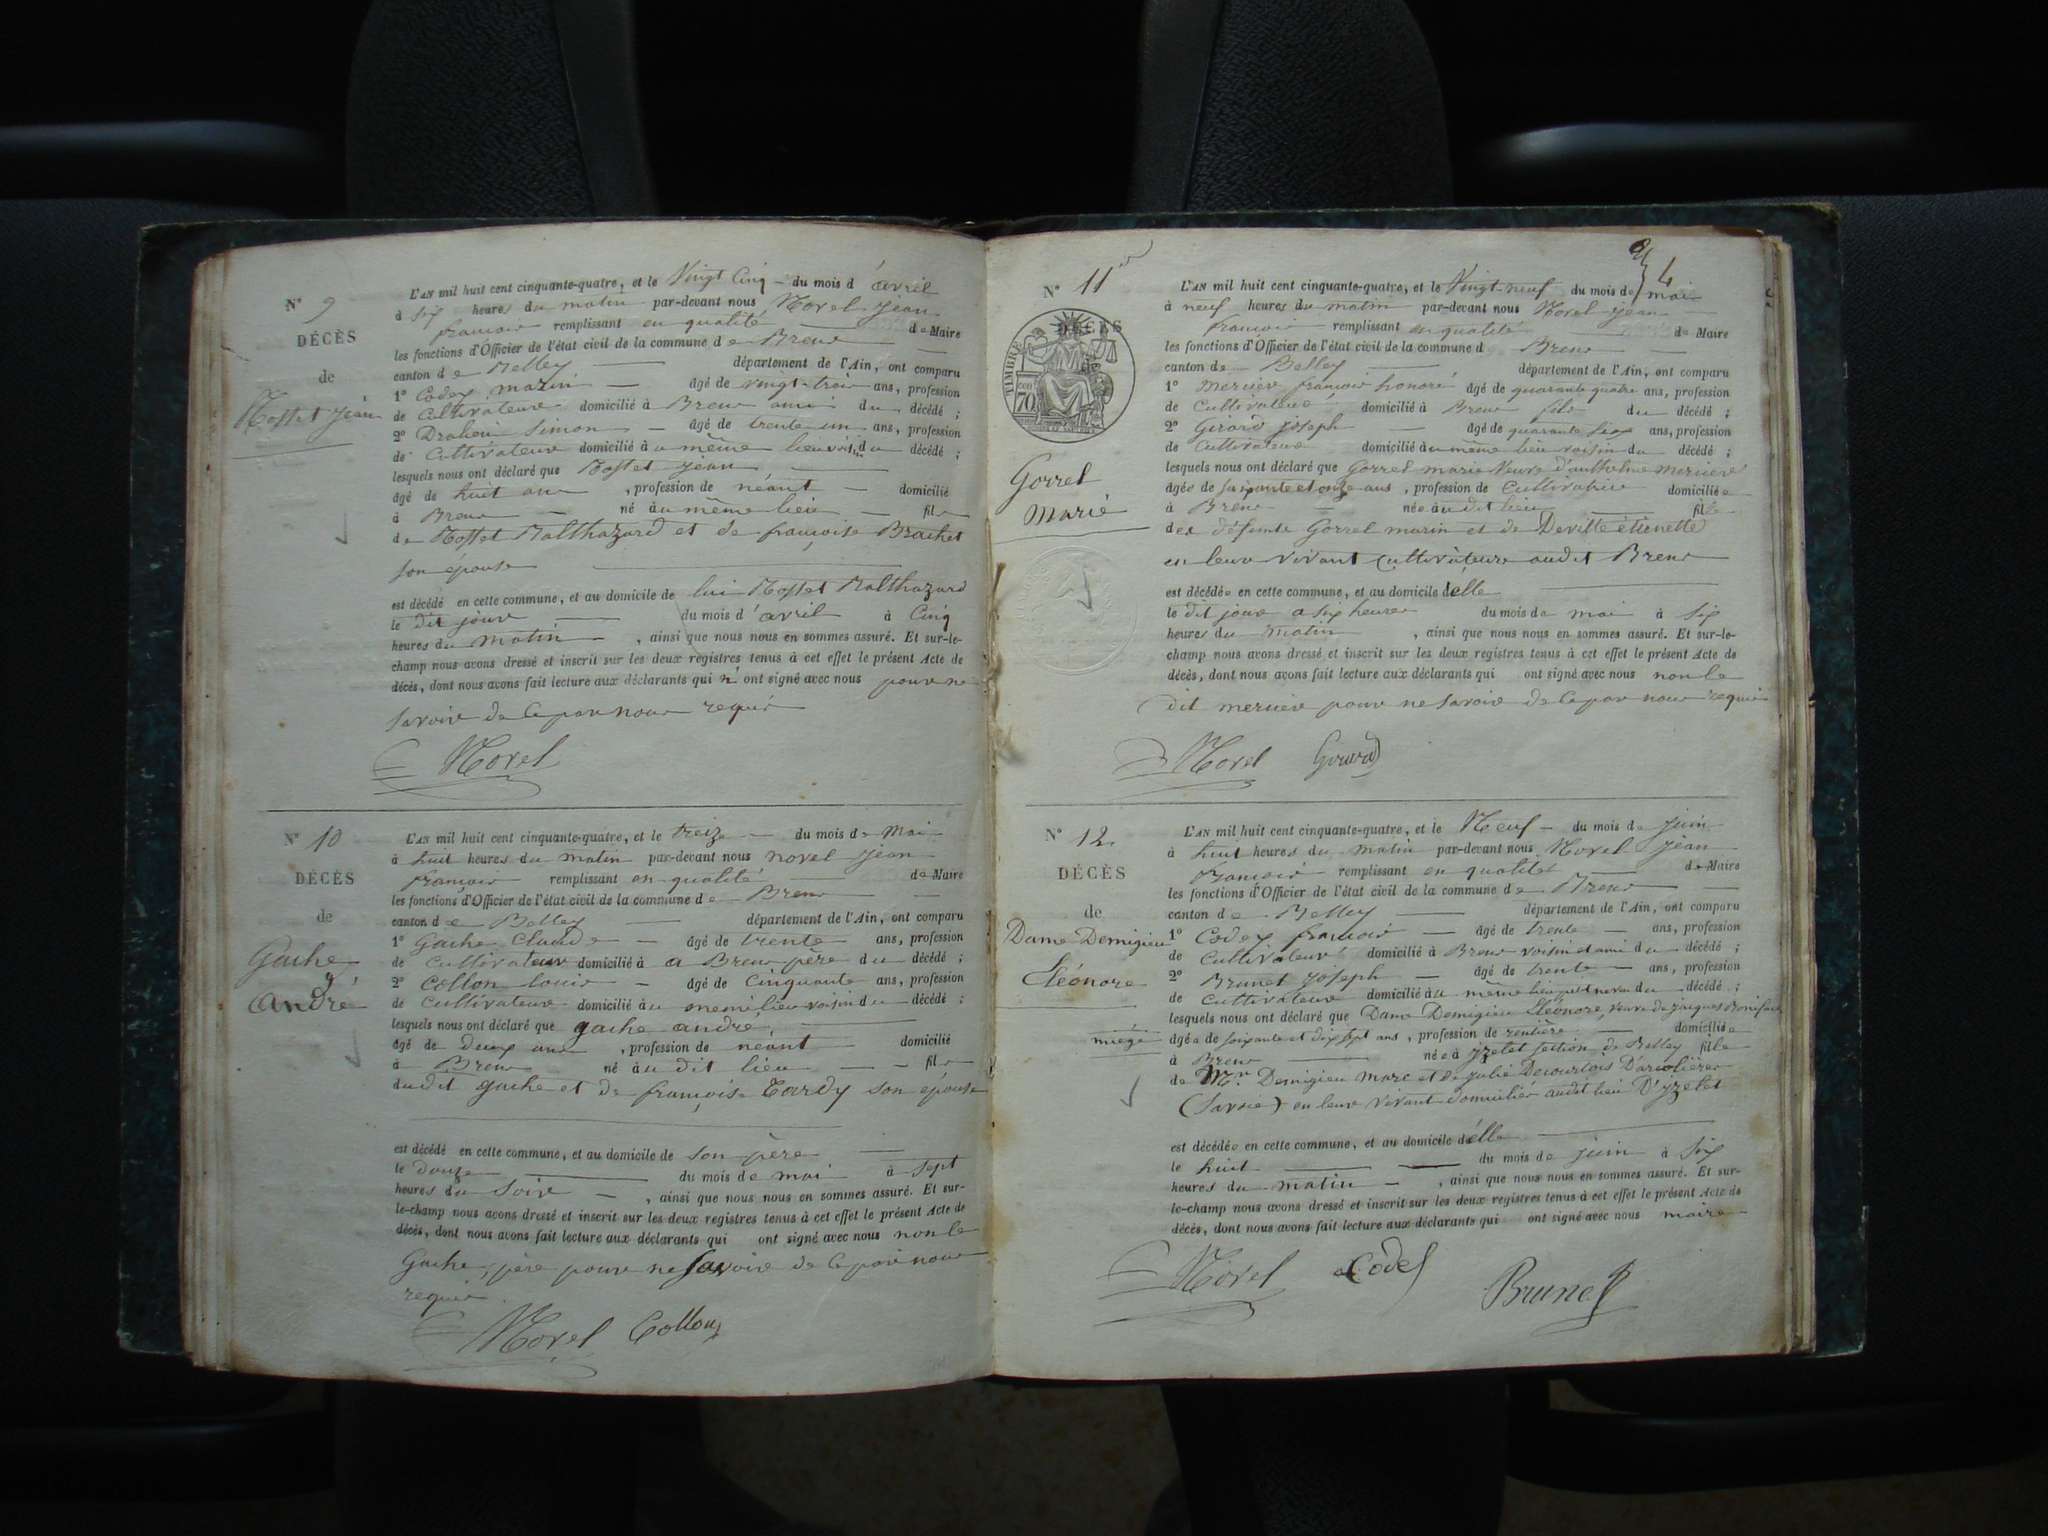 N° 9
DÉCÈS
de
Mosset Jean
L'AN mil huit cent cinquante-quatre, et le Vingt Cinq du mois d'avril
à six heures du matin par-devant nous Morel Jean
françois remplissant en qualité de Maire
les fonctions d'Officier de l'état civil de la commune de Brens
canton de Belley département de l'Ain, ont comparu
1° Codex marin âgé de vingt-trois ans, profession
de Cultivateur domicilié à Brens ami du décédé ;
2° Simon âgé de trente un ans, profession
de Cultivateur domicilié au même lieu voisin du décédé ;
lesquels nous ont déclaré que Mosset Jean
âgé de huit ans, profession de néant domicilié
à Brens né au même lieu fils
de Mosset Balthazard et de françoise Brachet
son épouse
est décédé en cette commune, et au domicile de lui Mosset Balthazard
le dit jour du mois d'avril à Cinq
heures du matin, ainsi que nous nous en sommes assuré. Et sur-le-
champ nous avons dressé et inscrit sur les deux registres tenus à cet effet le présent Acte de
décès, dont nous avons fait lecture aux déclarants qui n'ont signé avec nous pour ne
savoir de ce par nous requis
Morel
N° 10
DÉCÈS
de
Gache
André
L'AN mil huit cent cinquante-quatre, et le treize du mois de Mai
à huit heures du matin par-devant nous Morel Jean
françois remplissant en qualité de Maire
les fonctions d'Officier de l'état civil de la commune de Brens
canton de Belley département de l'Ain, ont comparu
1° Gache Claude âgé de trente ans, profession
de Cultivateur domicilié à a Brens père du décédé ;
2° Collon louis âgé de Cinquante ans, profession
de Cultivateur domicilié au meme lieu voisin du décédé ;
lesquels nous ont déclaré que gache andré
âgé de deux ans, profession de néant domicilié
à Brens né au dit lieu fils
du dit gache et de françoise Tardy son épouse
est décédé en cette commune, et au domicile de son père
le douze du mois de mai à sept
heures du soir, ainsi que nous nous en sommes assuré. Et sur-
le-champ nous avons dressé et inscrit sur les deux registres tenus à cet effet le présent Acte de
décès, dont nous avons fait lecture aux déclarants qui ont signé avec nous non le
Gache, père pour ne savoir de ce par nous
requis
Morel Collon
N° 11
DÉCÈS
de
TIMBRE
70
Gorret
Marie
4
L'AN mil huit cent cinquante-quatre, et le Vingt neuf du mois de mai
à neuf heures du matin par-devant nous Morel Jean
françois remplissant en qualité de Maire
les fonctions d'Officier de l'état civil de la commune d Brens
canton de Belley département de l'Ain, ont comparu
1° mercier françois honoré âgé de quarante quatre ans, profession
de Cultivateur domicilié à Brens fils du décédé ;
2° Girard joseph âgé de quarante six ans, profession
de Cultivateur domicilié au même lieu voisin du décédé ;
lesquels nous ont déclaré que Gorret marie Veuve d'anthelme mercier
âgée de soixante et onze ans, profession de Cultivatrice domiciliée
à Brens née au dit lieu fille
des défunts Gorret marin et de Deville étienette
en leur vivant Cultivateurs audit Brens
est décédée en cette commune, et au domicile d'elle
le dit jour a six heures du mois de mai à six
heures du matin, ainsi que nous nous en sommes assuré. Et sur-le-
champ nous avons dressé et inscrit sur les deux registres tenus à cet effet le présent Acte de
décès, dont nous avons fait lecture aux déclarants qui ont signé avec nous non le
dit mercier pour ne savoir de ce par nous requis
Morel Girard
N° 12
DÉCÈS
de
Dame Demigieu
Eléonore
L'AN mil huit cent cinquante-quatre, et le Neuf du mois de Juin
à huit heures du matin par-devant nous Morel Jean
françois remplissant en qualité de Maire
les fonctions d'Officier de l'état civil de la commune de Brens
canton de Belley département de l'Ain, ont comparu
1° Codex françois âgé de trente ans, profession
de Cultivateur domicilié à Brens voisin et ami du décédé ;
2° Brunet joseph âgé de trente ans, profession
de Cultivateur domicilié au même lieu du décédé ;
lesquels nous ont déclaré que Dame Demigieu Eléonore, veuve de jacques Boniface
miège âgée de soixante et dix sept ans, profession de rentière domiciliée
à Brens née à yzelet section de Belley fille
de Mr Demigieu Marc et de Julie Decourtois D'arcolières
(Savoie) en leur vivant domiciliés audit lieu D'yzelet
est décédée en cette commune, et au domicile d'elle
le huit du mois de juin à six
heures du matin, ainsi que nous nous en sommes assuré. Et sur-
le-champ nous avons dressé et inscrit sur les deux registres tenus à cet effet le présent Acte de
décès, dont nous avons fait lecture aux déclarants qui ont signé avec nous maire
Morel Codex Brunet